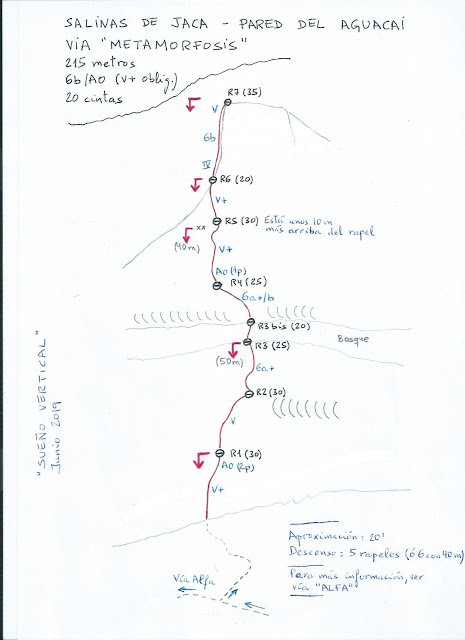 SALINAS DE JACA - PARED DEL AGUACAI
VÍA "METAMORFOSIS"
215 metros
6b/A0 (V+ oblig.)
20 cintas
R7 (35)
V
6b
IV
R6 (20)
V+
xx
R5 (30) Está unos 10 m
más arriba del rapel
(40m)
V+
A0 (1p)
R4 (25)
6a+/b
R3 bis (20)
Bosque
R3 (25)
(50m)
6a+
R2 (30)
V
R1 (30)
A0 (2p)
V+
"SUEÑO VERTICAL"
Junio 2019
Aproximación: 20'
Descenso: 5 rapeles (ó 6 con 40 m)
Para más información, ver
vía "ALFA"
Vía Alfa